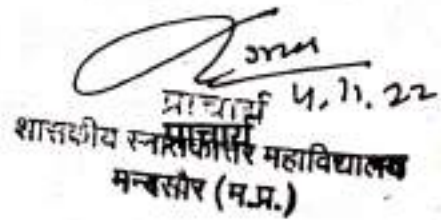 प्राचार्य 4.11.22
प्राचार्य
शासकीय स्नातकोत्तर महाविद्यालय
मन्दसौर (म.प्र.)